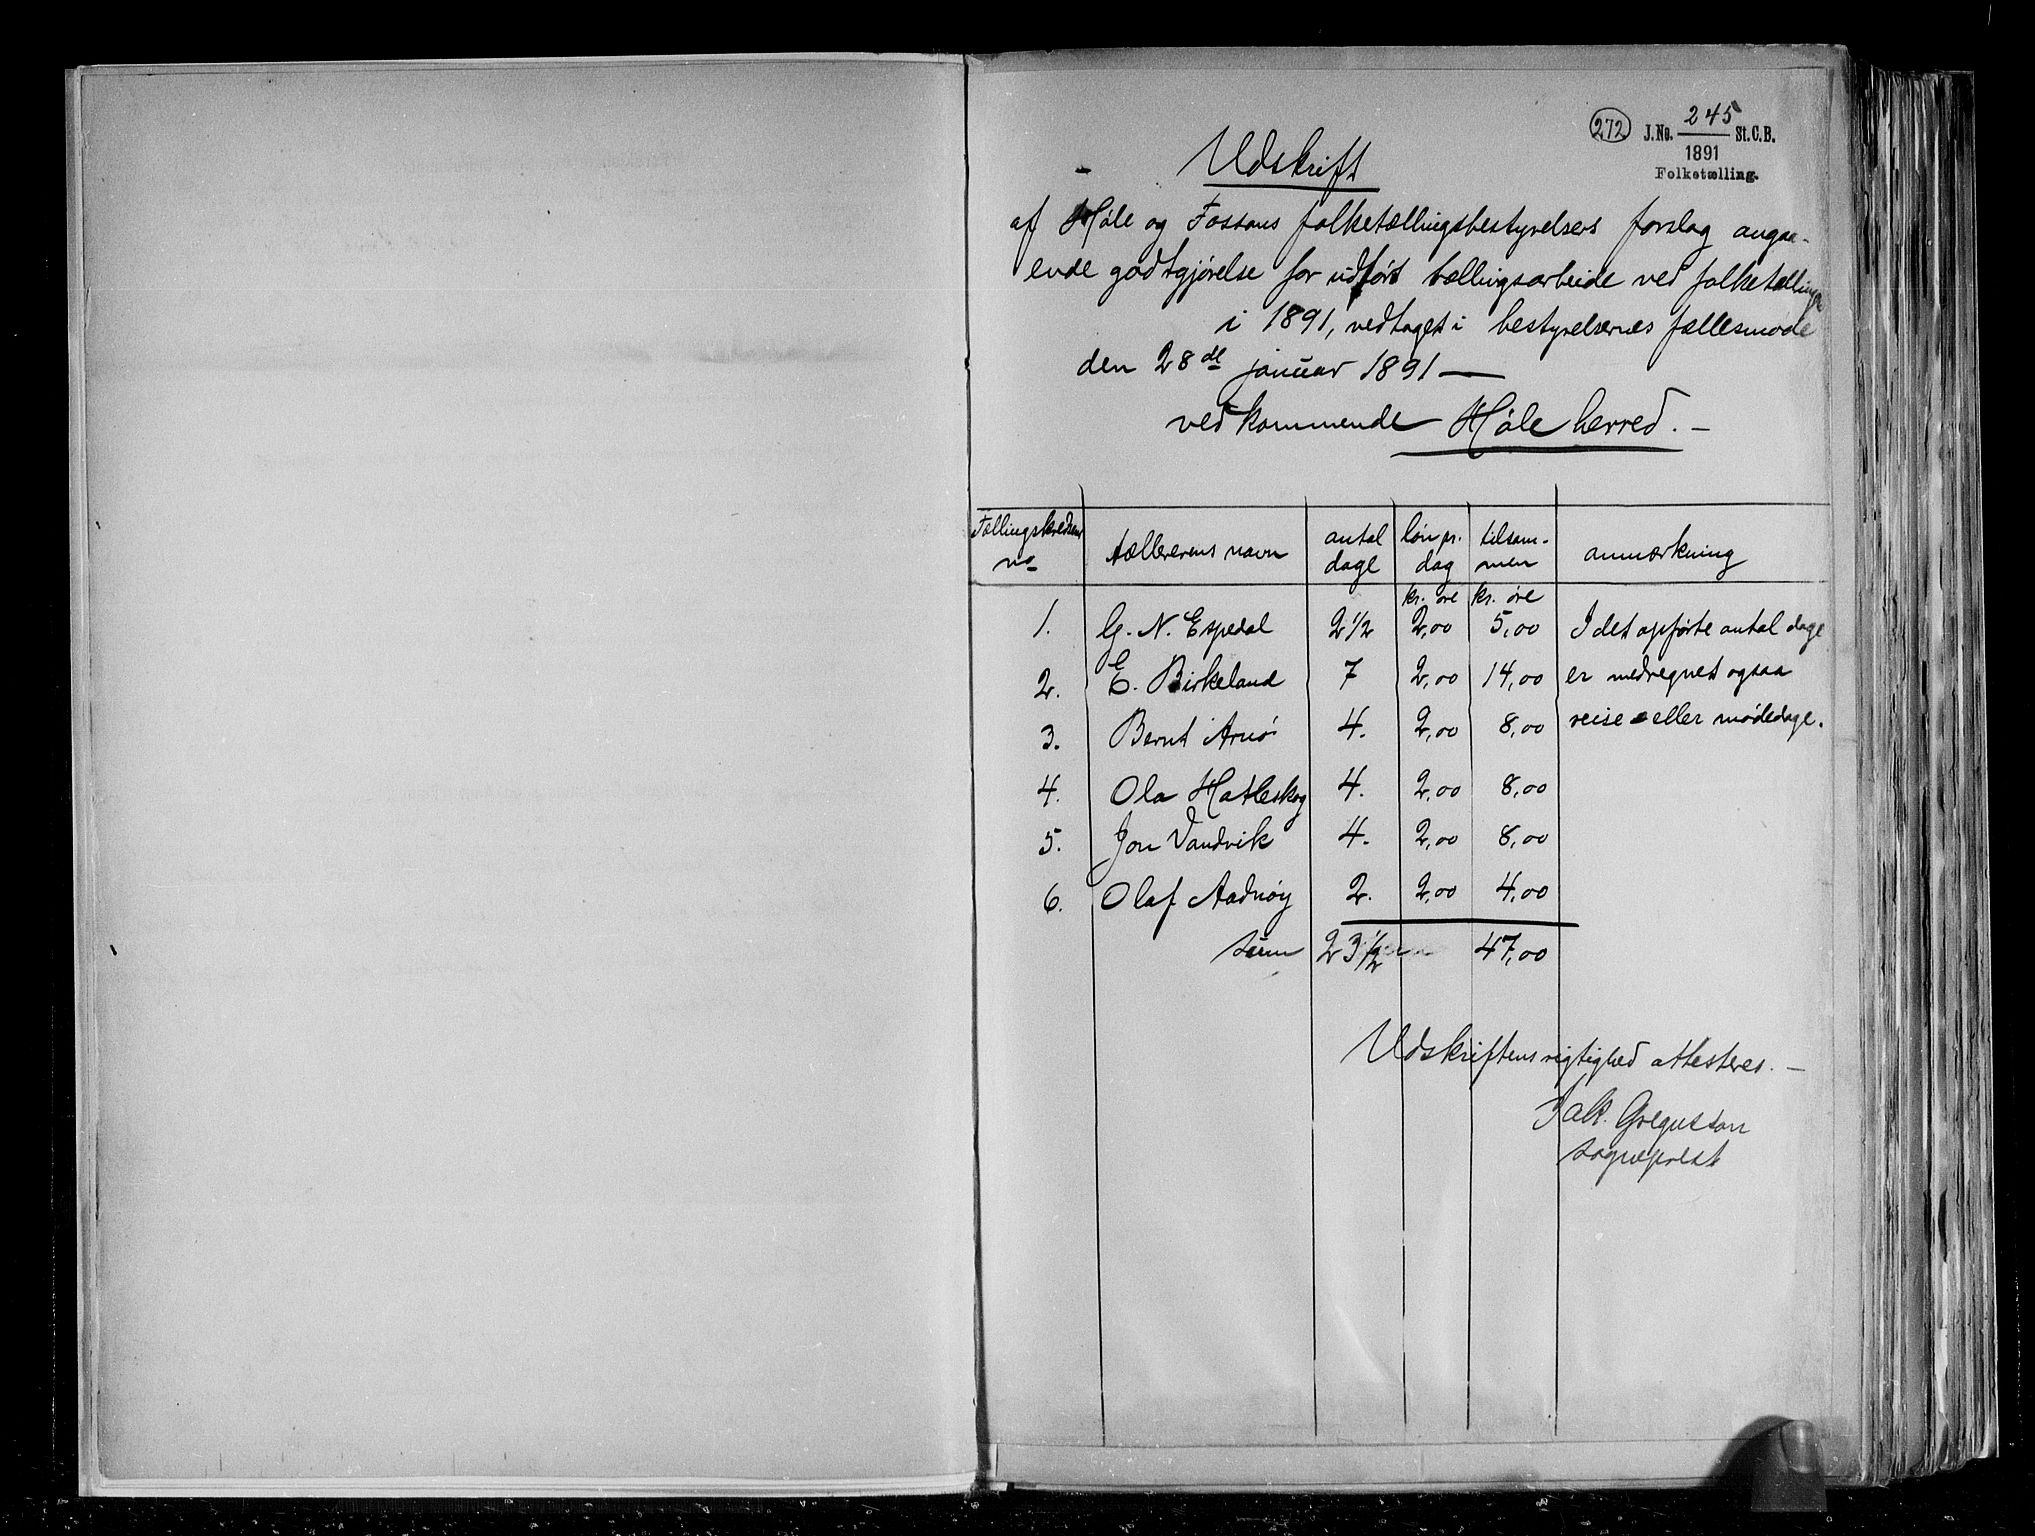 272 J.No. 245 St.C.B.
1891
Folketælling.
Udskrift
af Høle og Fossans folketællingsbestyrelsers forslag angaa-
ende godtgjørelse for udført tællingsarbeide ved folketællingen
i 1891, vedtaget i bestyrelsernes fællesmøde
den 28de januar 1891 —
vedkommende Høle herred. —
Tællingskredsens no | tællerens navn | antal dage | løn pr. dag | tilsam-men | anmærkning
kr. øre kr. øre
1. G. N. Espedal 2 1/2 2,00 5,00 I det opførte antal dage
2. E. Birkeland 7 2,00 14,00 er medregnet ogsaa
3. Bernt Arnø 4. 2,00 8,00 reise- eller mødedage.
4. Ola Hatleskog 4. 2,00 8,00
5. Jon Vandvik 4. 2,00 8,00
6. Olaf Aadnøy 2. 2,00 4,00
sum 23 1/2 47,00
Udskriftens rigtighed attesteres. —
Falk. Gregusson
sogneprest